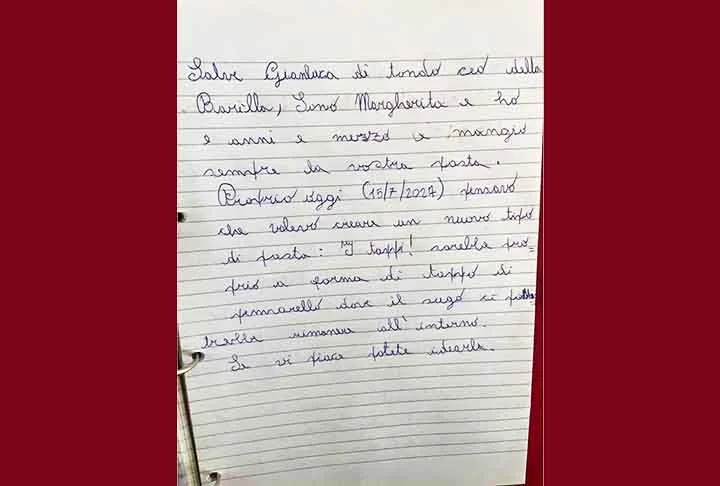 Salve Gianluca di tondo ceo della
Barilla, Sono Margherita e ho
e anni e mezzo e mangio
sempre la vostra pasta.
Proprio oggi (15/7/2024) pensavo
che volevo creare un nuovo tipo
di pasta: "I tappi! sarebbe pro=
prio a forma di tappo di
pennarello dove il sugo ci pot
trebbe rimanere all'interno.
Se vi piace potete idearla.